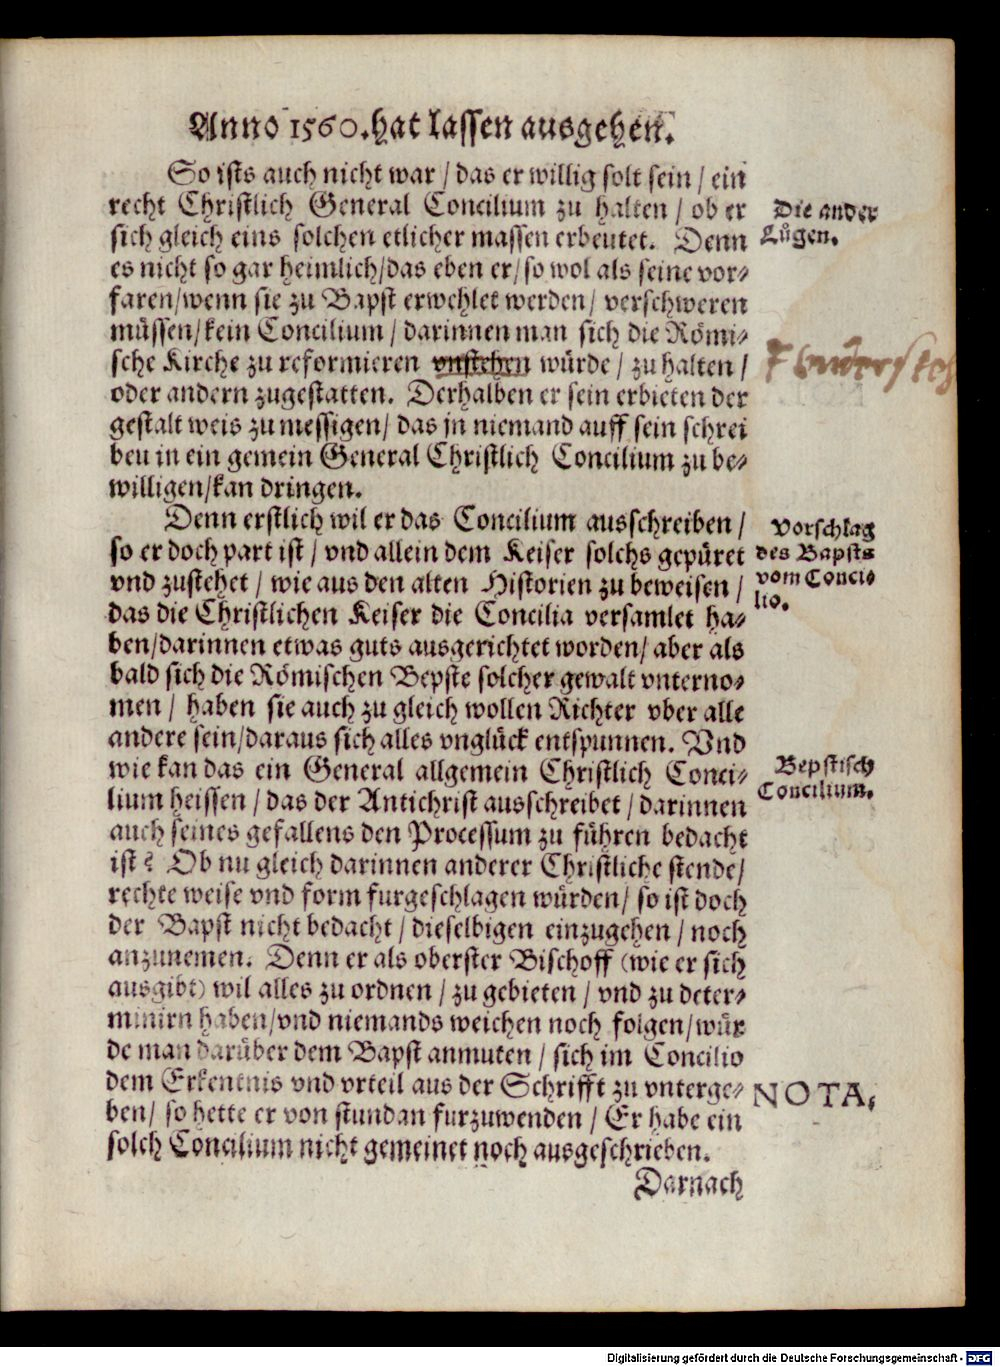 Anno 1560. hat lassen ausgehen.
So ists auch nicht war / das er willig solt sein / ein
recht Christlich General Concilium zu halten / ob er
sich gleich eins solchen etlicher massen erbeutet. Denn
es nicht so gar heimlich/das eben er/so wol als seine vor⸗
faren/wenn sie zu Bapst erwehlet werden/ verschweren
müssen/kein Concilium / darinnen man sich die Römi⸗
sche Kirche zu reformieren vnstehen würde / zu halten /
oder andern zugestatten. Derhalben er sein erbieten der
gestalt weis zu messigen/ das jn niemand auff sein schrei
ben in ein gemein General Christlich Concilium zu be⸗
willigen/kan dringen.
Die ander
Lügen.
Denn erstlich wil er das Concilium ausschreiben /
so er doch part ist / vnd allein dem Keiser solchs gepüret
vnd zustehet / wie aus den alten Historien zu beweisen /
das die Christlichen Keiser die Concilia versamlet ha⸗
ben/darinnen etwas guts ausgerichtet worden/ aber als
bald sich die Römischen Bepste solcher gewalt vnterno⸗
men / haben sie auch zu gleich wollen Richter vber alle
andere sein/daraus sich alles vnglück entspunnen. Vnd
wie kan das ein General allgemein Christlich Conci⸗
lium heissen / das der Antichrist ausschreibet / darinnen
auch seines gefallens den Processum zu führen bedacht
ist? Ob nu gleich darinnen anderer Christliche stende/
rechte weise vnd form furgeschlagen würden/ so ist doch
der Bapst nicht bedacht / dieselbigen einzugehen / noch
anzunemen. Denn er als oberster Bischoff (wie er sich
ausgibt) wil alles zu ordnen / zu gebieten / vnd zu deter⸗
minirn haben/vnd niemands weichen noch folgen/wür
de man darüber dem Bapst anmuten / sich im Concilio
dem Erkentnis vnd vrteil aus der Schrifft zu vnterge⸗
ben/ so hette er von stundan furzuwenden / Er habe ein
solch Concilium nicht gemeinet noch ausgeschrieben.
Vorschlag
des Bapsts
vom Conci⸗
lio.
Bepstisch
Concilium.
NOTA.
Darnach
Digitalisierung gefördert durch die Deutsche Forschungsgemeinschaft - DFG